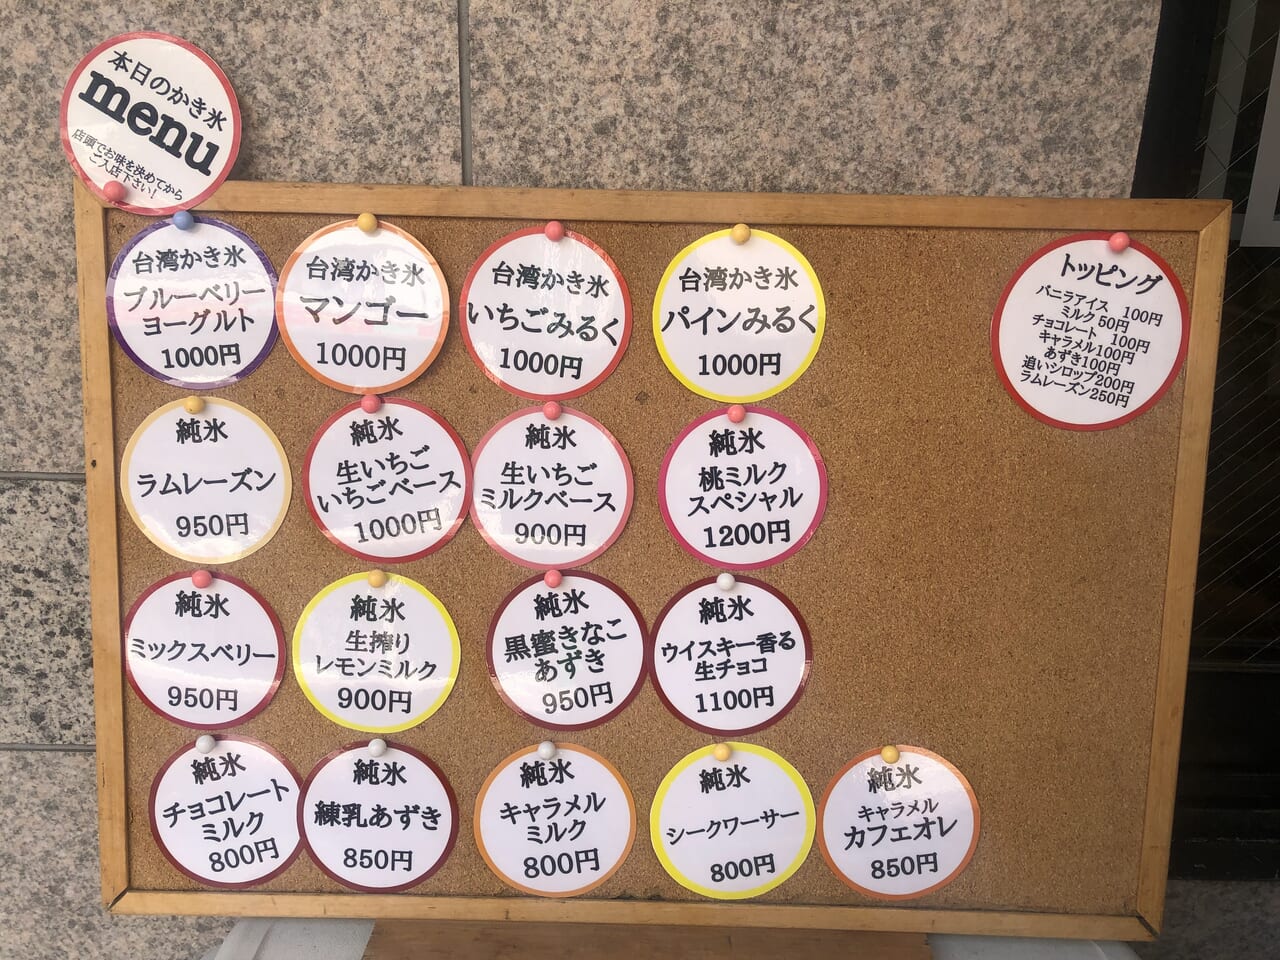 本日のかき氷
menu
店頭でお味を決めてから
ご入店下さい！
台湾かき氷
ブルーベリー
ヨーグルト
1000円
台湾かき氷
マンゴー
1000円
台湾かき氷
いちごみるく
1000円
台湾かき氷
パインみるく
1000円
トッピング
バニラアイス 100円
ミルク50円
チョコレート 100円
キャラメル100円
あずき100円
追いシロップ200円
ラムレーズン250円
純氷
ラムレーズン
950円
純氷
生いちご
いちごベース
1000円
純氷
生いちご
ミルクベース
900円
純氷
桃ミルク
スペシャル
1200円
純氷
ミックスベリー
950円
純氷
生搾り
レモンミルク
900円
純氷
黒蜜きなこ
あずき
950円
純氷
ウイスキー香る
生チョコ
1100円
純氷
チョコレート
ミルク
800円
純氷
練乳あずき
850円
純氷
キャラメル
ミルク
800円
純氷
シークワーサー
800円
純氷
キャラメル
カフェオレ
850円